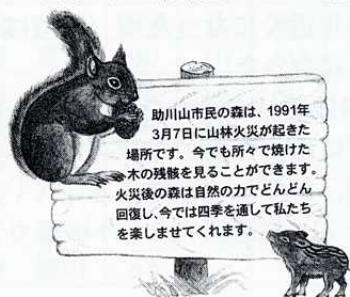 助川山市民の森は、1991年
3月7日に山林火災が起きた
場所です。今でも所々で焼けた
木の残骸を見ることができます。
火災後の森は自然の力でどんどん
回復し、今では四季を通して私たち
を楽しませてくれます。